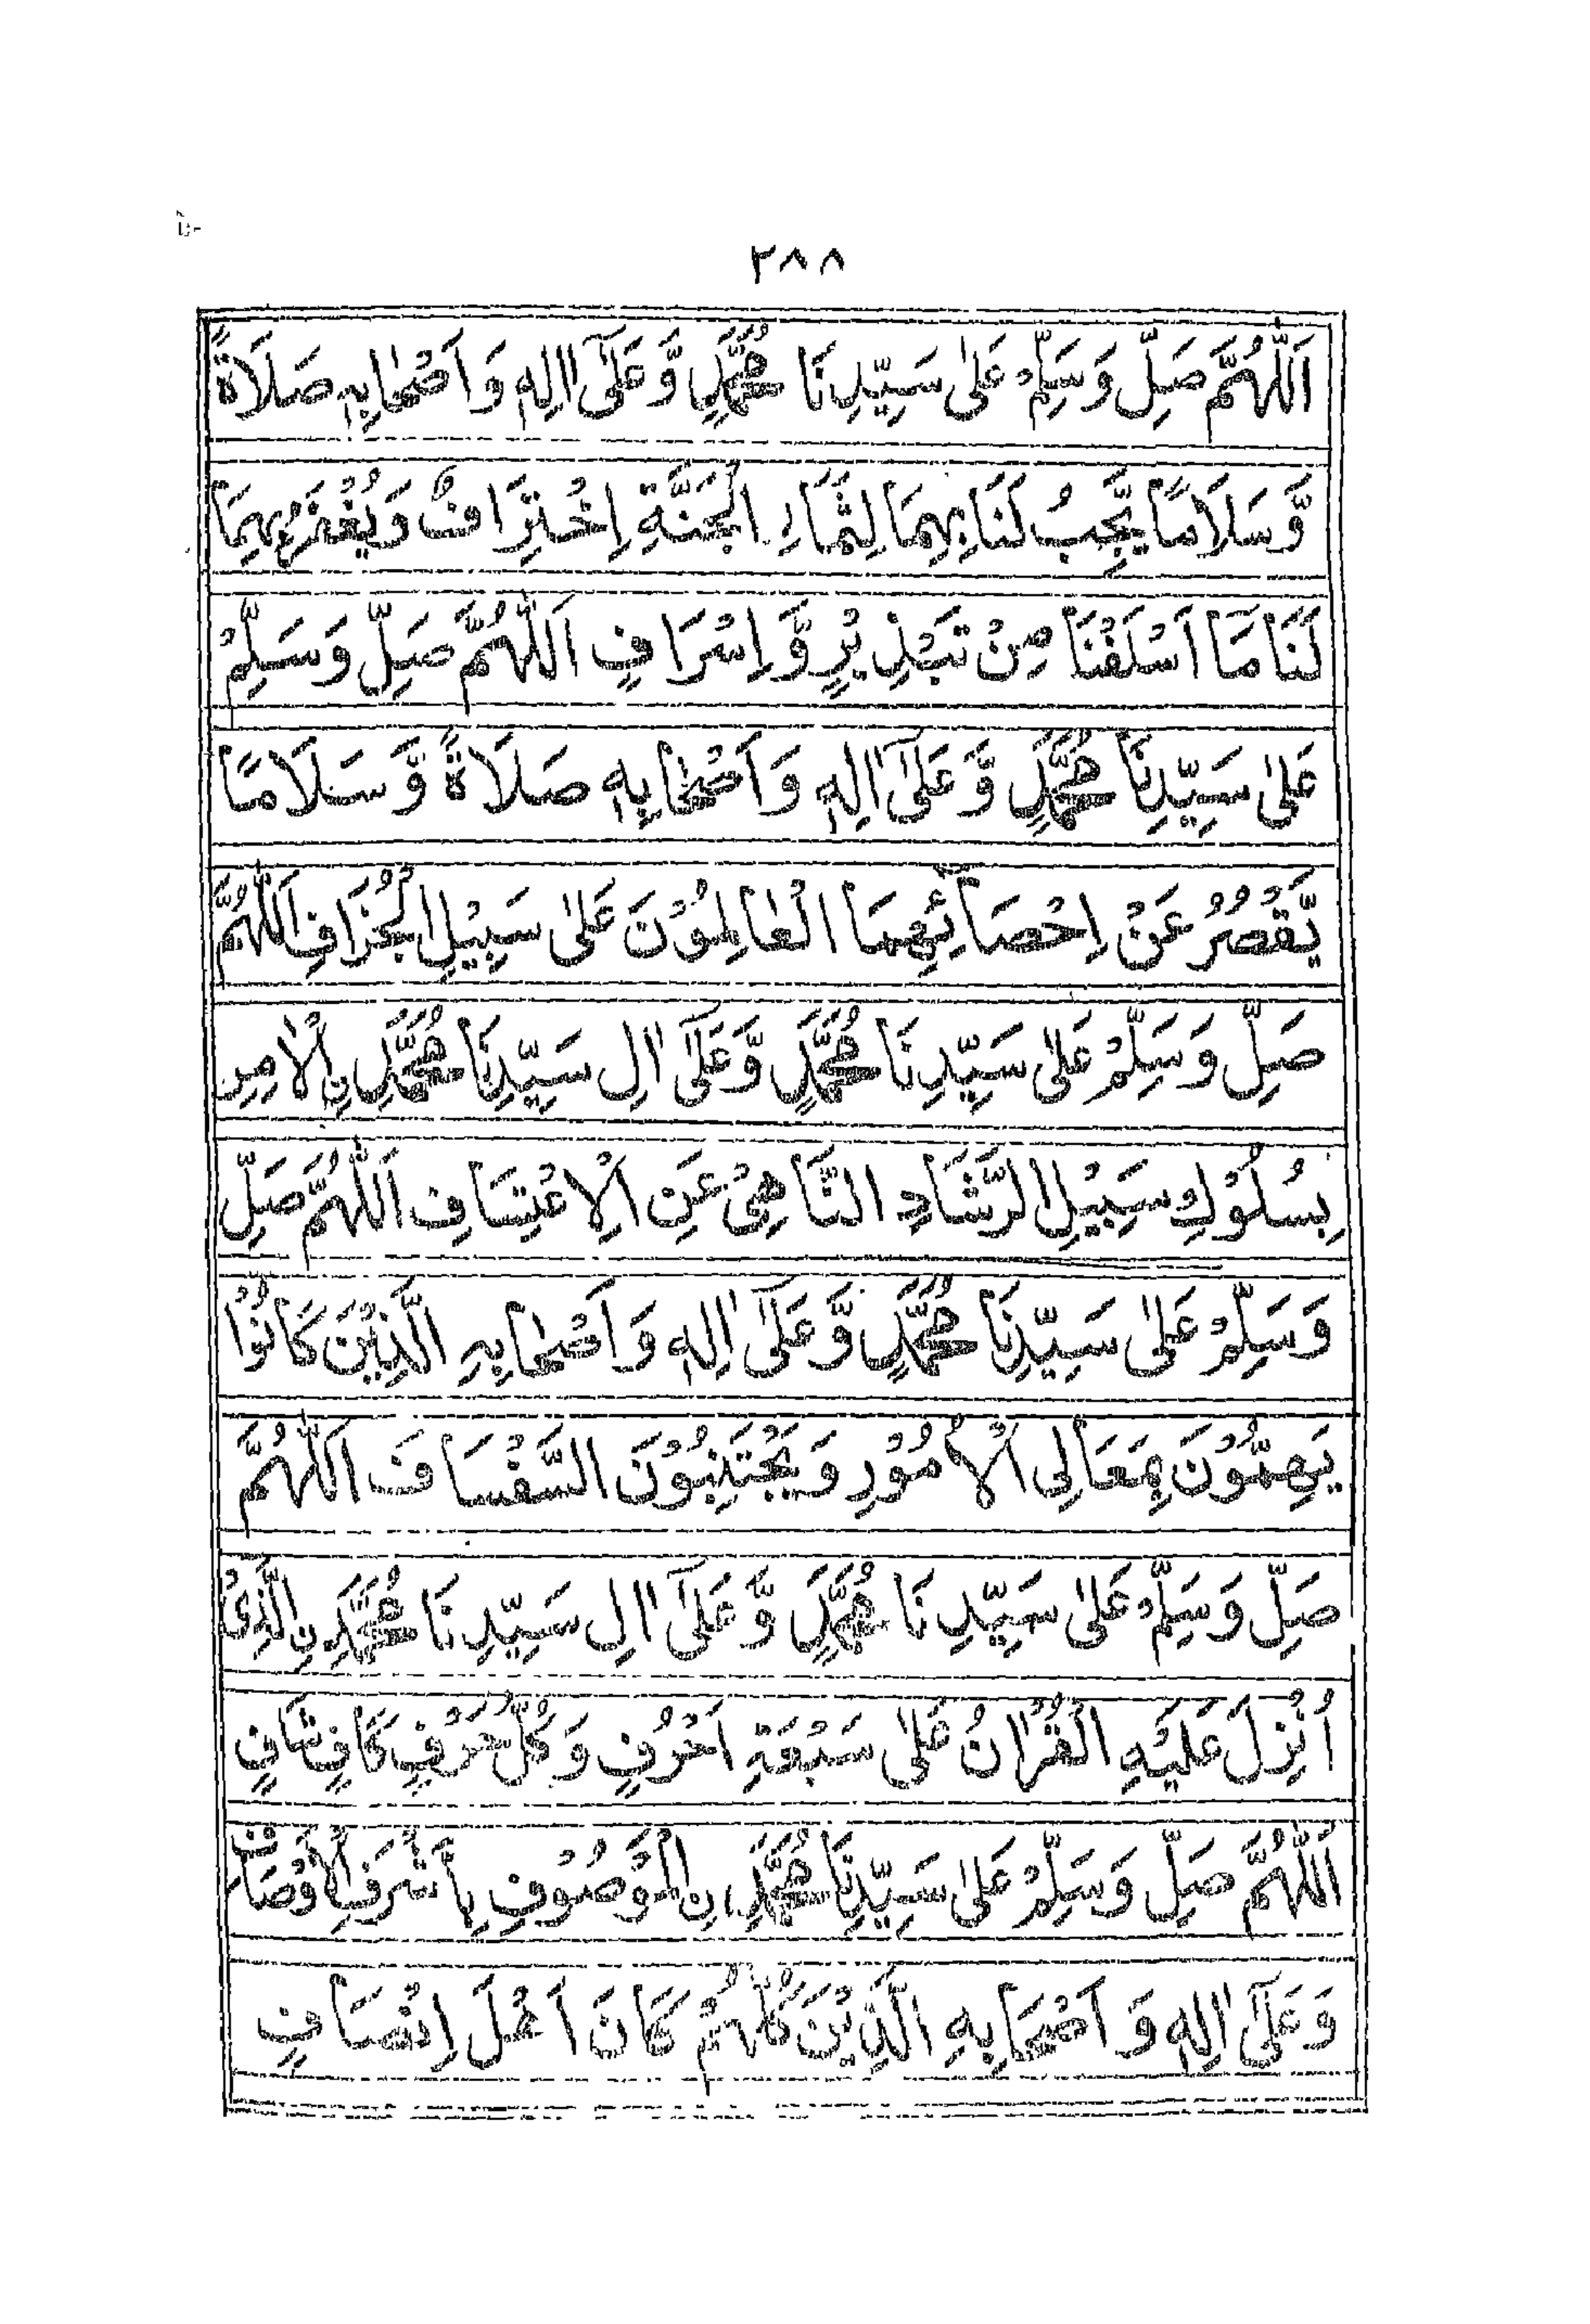 ٢٨٨
اَللّٰهُمَّ صَلِّ وَسَلِّمْ عَلٰى سَيِّدِنَا مُحَمَّدٍ وَّعَلٰٓى اٰلِهٖ وَ اَصْحَابِهٖ صَلَاةً
وَّسَلَامًا يَّجِبُ لَنَا بِهِمَا لِثِمَارِ الْجَنَّةِ اِخْتِرَافٌ وَيُغْفَرُ بِهِمَا
لَنَا مَا اَسْلَفْنَا مِنْ تَبْذِيْرٍ وَّ اِسْرَافٍ اَللّٰهُمَّ صَلِّ وَسَلِّمْ
عَلٰى سَيِّدِنَا مُحَمَّدٍ وَّ عَلٰٓى اٰلِهٖ وَ اَصْحَابِهٖ صَلَاةً وَّ سَلَامًا
يَّقْصُرُ عَنْ اِحْصَآئِهِمَا الْعَالِمُوْنَ عَلٰى سَبِيْلِ الْجُزَافِ اَللّٰهُمَّ
صَلِّ وَسَلِّمْ عَلٰى سَيِّدِنَا مُحَمَّدٍ وَّعَلٰٓى اٰلِ سَيِّدِنَا مُحَمَّدِ نِ الْاٰمِرِ
بِسُلُوْكِ سَبِيْلِ الرَّشَادِ النَّاهِيْ عَنِ الْاِعْتِسَافِ اَللّٰهُمَّ صَلِّ
وَسَلِّمْ عَلٰى سَيِّدِنَا مُحَمَّدٍ وَّعَلٰٓى اٰلِهٖ وَ اَصْحَابِهِ الَّذِيْنَ كَانُوْا
يَهِمُّوْنَ بِمَعَالِى الْاُمُوْرِ وَيَجْتَنِبُوْنَ السَّفْسَافَ اَللّٰهُمَّ
صَلِّ وَسَلِّمْ عَلٰى سَيِّدِنَا مُحَمَّدٍ وَّ عَلٰٓى اٰلِ سَيِّدِنَا مُحَمَّدِ نِ الَّذِىْ
اُنْزِلَ عَلَيْهِ الْقُرْاٰنُ عَلٰى سَبْعَةِ اَحْرُفٍ وَكُلُّ حَرْفٍ كَافٍ شَافٍ
اَللّٰهُمَّ صَلِّ وَسَلِّمْ عَلٰى سَيِّدِنَا مُحَمَّدِ نِ الْمَوْصُوْفِ بِاَشْرَفِ الْاَوْصَافِ
وَعَلٰٓى اٰلِهٖ وَ اَصْحَابِهِ الَّذِيْنَ كُلُّهُمْ كَانَ اَهْلَ اِنْصَافٍ